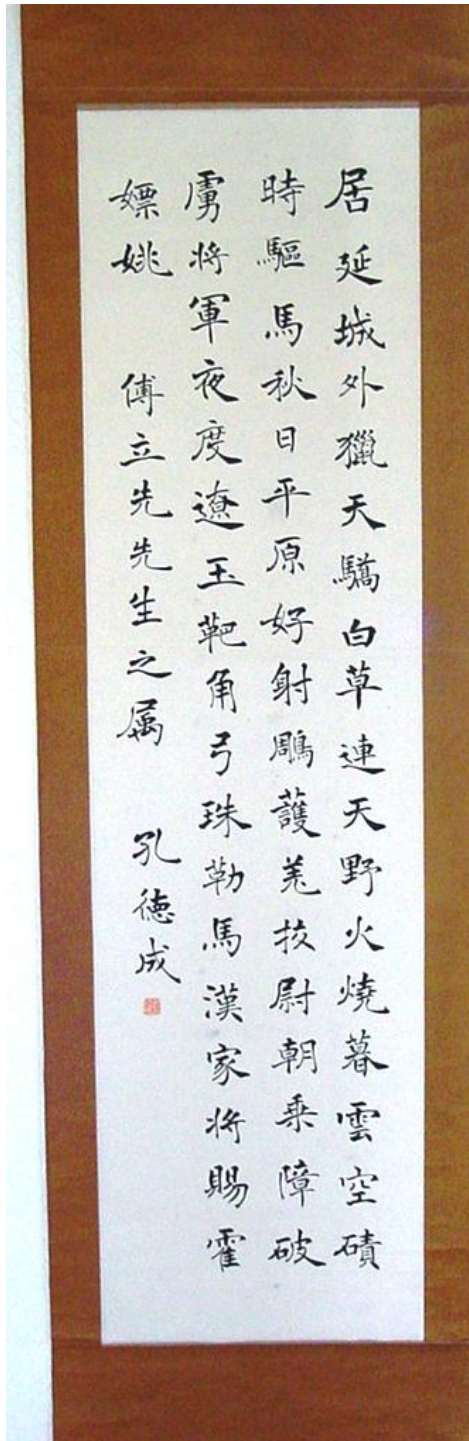 居延城外獵天驕白草連天野火燒暮雲空磧
時驅馬秋日平原好射鵰護羌挍尉朝乗障破
虜将軍夜度遼玉靶角弓珠勒馬漢家将賜霍
嫖姚 傅立先先生之属 孔徳成